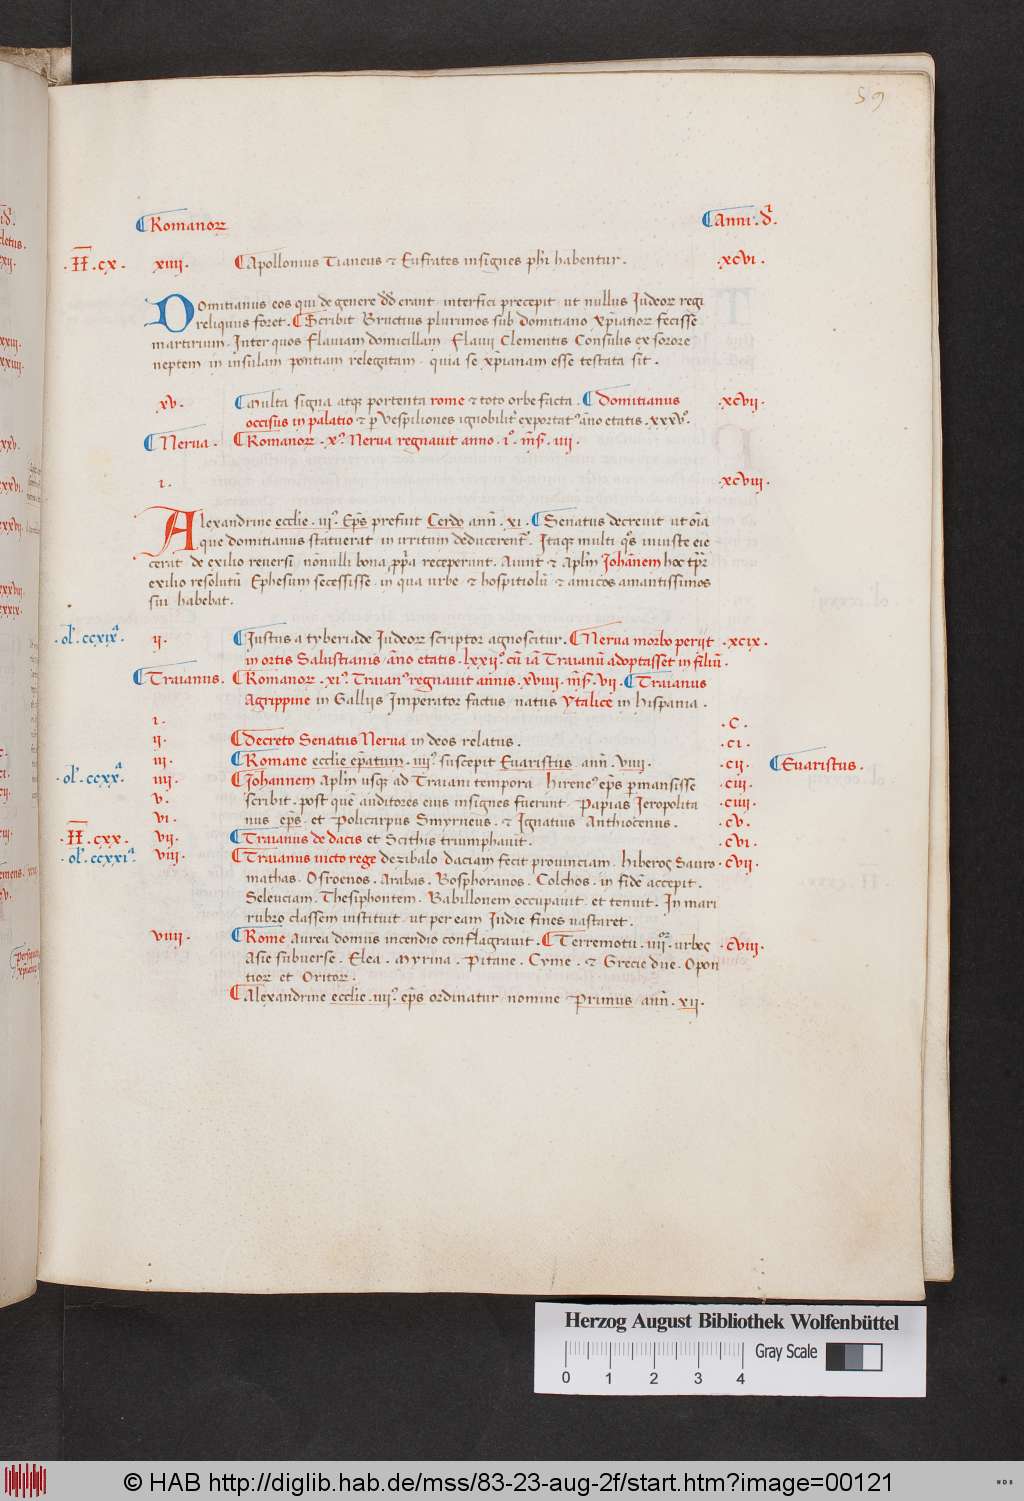 59
Romanoꝝ Anni . d̄ .
. II . cx . xiiii . Apollonius Tianeus & Eufrates insignes phi habentur . . xcvi .
Domitianus eos qui de genere dd erant interfici precepit ut nullus Iudeoꝝ regi
reliquius foret . Scribit Bructius plurimos sub domitiano xp̄ianoꝝ fecisse
martirium . Inter quos Flauiam domicillam . Flauii Clementis Consulis ex sorore
neptem in insulam pontiam relegatam . quia se xp̄ianam esse testata sit .
xv . Multa signa atqꝫ portenta rome & toto orbe facta . Domitianus . xcvii .
occisus in palatio & p Vespiliones ignobilit̉ exportatꝰ āno etatis . xxxvº .
Nerua . Romanoꝝ . xº . Nerua regnauit anno . iº . mēs . iiii .
i . . xcviii .
Alexandrine ecclie . iiiº . Ep̄s prefuit Cerdo ann̄ . xi . Senatus decreuit ut oīa
que domitianus statuerat in irritum deducerent̉ . Itaqꝫ multi q̄s iniuste eie
cerat de exilio reuersi nonnulli bona p̄pria receperunt . Aiunt & Apl̄m Iohānem hoc tp̄r
exilio resolutū Ephesum secessisse in qua urbe & hospitiolū & amicos amantissimos
sui habebat .
. ol̄ . ccxixª . ii . Iustus a tyberiade Iudeoꝝ scriptor agnoscitur . Nerua morbo perijt . xcix .
in ortis Salustianis āno etatis . lxxiiº cū iā Traianū adoptasset in filiū .
Traianus . Romanoꝝ . xiº . Traianꝰ regnauit annis . xviiii . mēs . vii . Traianus
Agrippine in Gallijs Imperator factus natus Ytalice in hispania .
i . . c .
ii . Decreto Senatus Nerua in deos relatus . . ci .
iii . Romane ecclie ep̄atum . iiiiº . suscepit Euaristus ann̄ . viiii . . cii . Euaristus .
. ol̄ . ccxxª . iiii . Iohannem apl̄m usqꝫ ad Traiani tempora hireneꝰ ep̄s p̄mansisse . ciii .
v . scribit . post quē auditores eius insignes fuerunt . Papias Ieropolita . ciiii .
vi . nus ep̄s . et Policarpus Smyrneus . & Ignatius Anthiocenus . . cv .
. II . cxx . vii . Traianus de dacis et Scithis triumphauit . . cvi .
. ol̄ . ccxxiª . viii . Traianus uicto rege dezibalo daciam fecit prouinciam . hiberos Sauro . cvii .
mathas . Osroenos . Arabas . Bosphoranos . Colchos . in fidē accepit .
Seleuciam . Thesiphontem . Babillonem occupauit et tenuit . In mari
rubro classem instituit ut per eam Indie fines uastaret .
viiii . Rome aurea domus incendio conflagrauit . Terremotu . iiiioꝝ . urbes . cviii .
Asie subuerse . Elea . Myrina . Pitane . Cyme . & Grecie due . Opon
tioꝝ et Oritoꝝ .
Alexandrine ecclie . iiiiº . ep̄s ordinatur nomine Primus ann̄ . xii .
Herzog August Bibliothek Wolfenbüttel
Gray Scale
0 1 2 3 4
© HAB http://diglib.hab.de/mss/83-23-aug-2f/start.htm?image=00121